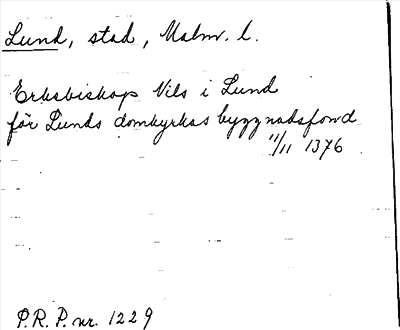 Lund, stad, Malm. l.
Erkebiskop Nils i Lund
för Lunds domkyrkas byggnadsfond
11/11 1376
P.R.P. nr. 1229